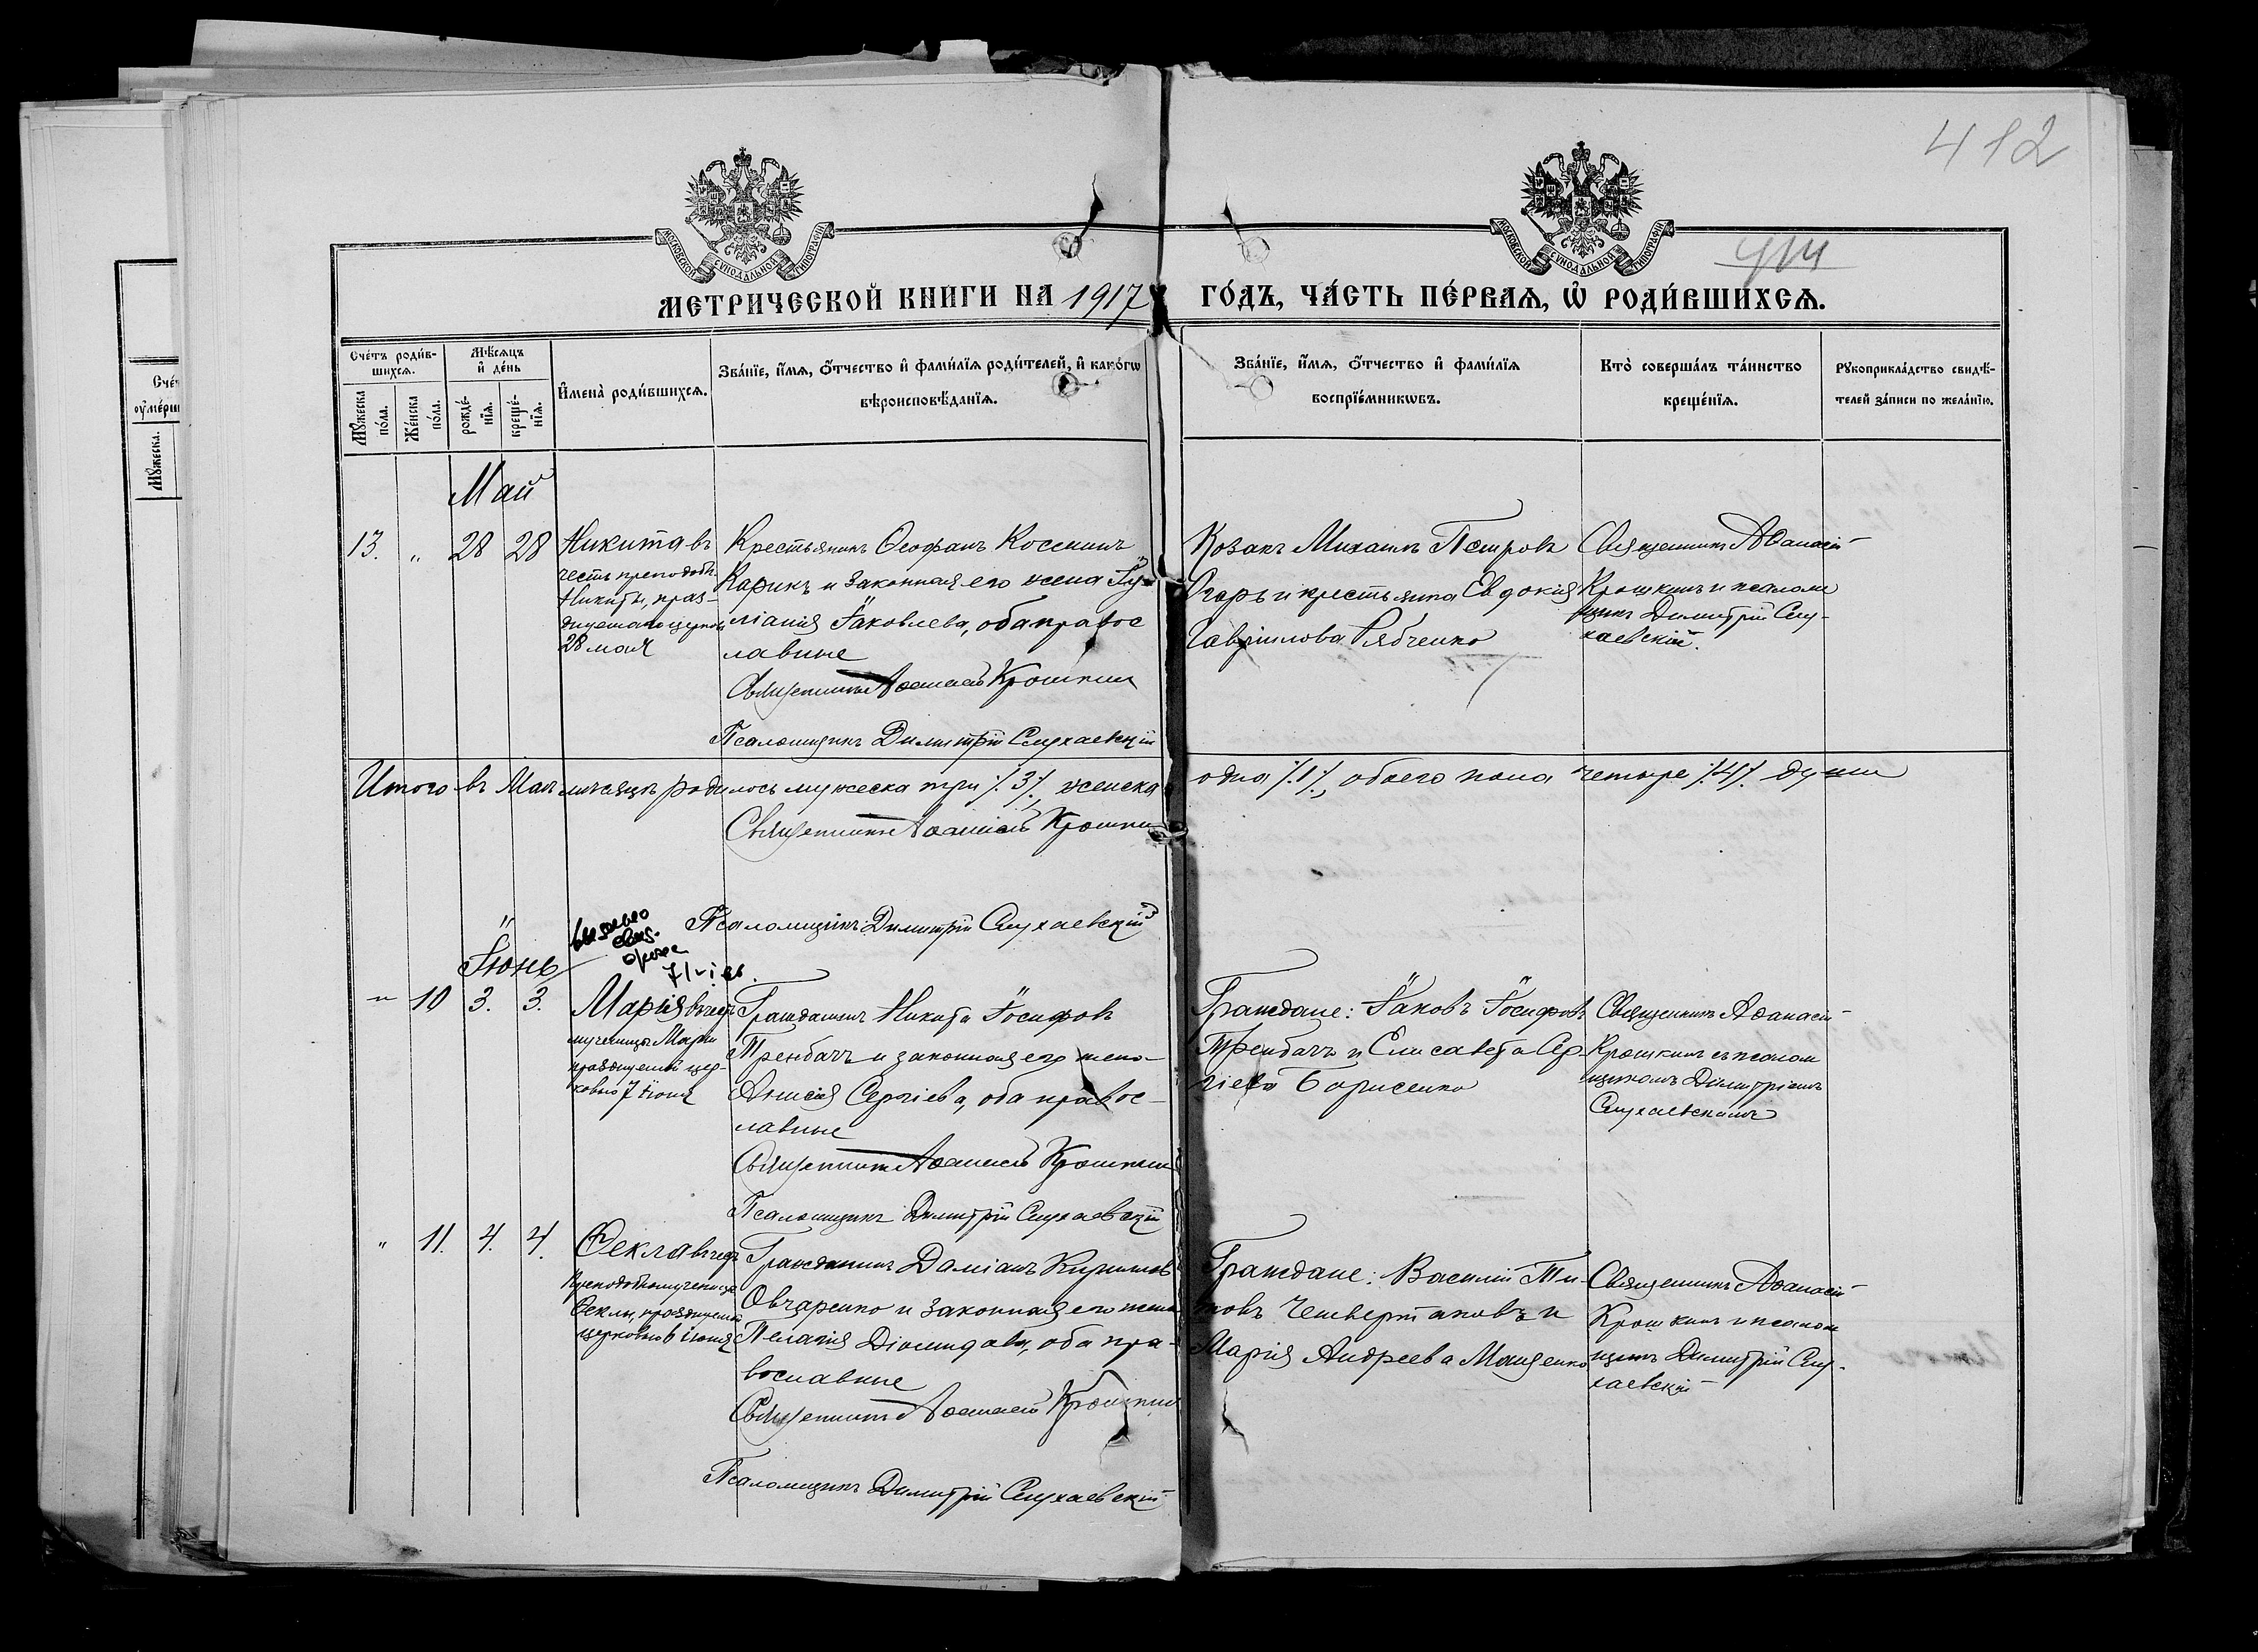 412
МОСКОВСКОЙ СѴНОДАЛЬНОЙ ТИПОГРАФІИ
МОСКОВСКОЙ СѴНОДАЛЬНОЙ ТИПОГРАФІИ
МЕТРИЧЕСКОЙ КНИГИ НА 1917 ГО́ДЪ, ЧА́СТЬ ПЕ́РВАѦ, Ѡ РОДИ́ВШИХСѦ.
Сче́тъ роди́в-
шихсѧ.
Мꙋ́жеска по́ла.
Же́нска по́ла.
Мѣ́сѧцъ и де́нь
рожде́-
нїѧ.
креще́-
нїѧ.
Имена̀ роди́вшихсѧ.
Зва́нїе, и́мѧ, о́тчество и фами́лїѧ роди́телей, и како́гѡ
вѣроисповѣ́данїѧ.
Зва́нїе, и́мѧ, о́тчество и фами́лїѧ
воспрїе́мникѡвъ.
Кто̀ соверша́лъ та́инство
креще́нїѧ.
Рꙋкоприкла́дство свидѣ́-
телей за́писи по жела́нїю.
Май
13. „ 28 28
Никита въ
честь преподоб.
Никиты, праз-
днуемаго церков
28 мая
Крестьянинъ Ѳеофанъ
Карикъ и законная его жена Іу-
ліанія Іаковлева, оба правос
лавные
Священникъ Аѳанасій Крошкин
Псаломщикъ Димитрій Слухаевскій
Козакъ Михаилъ Петровъ
Огарь и крестьянка Евдокія
Гавріилова Рябченко
Священникъ Аѳанасій
Крошкинъ и псалом
щикъ Димитрій Слу-
хаевскій.
Итого въ Маѣ мѣсяцѣ родилось мужеска три /.3/., женска одна /.1/., обоего пола четыре /.4/. души
Священникъ Аѳанасій Крошкин
Псаломщикъ Димитрій Слухаевскій
Іюнь
„ 10 3. 3.
Марія въ честь
мученицы Маріи
празднуемой цер-
ковью 7 іюня
Гражданинъ Никита Іосифовъ
Тренбачъ и законная его жена
Анисія Сергіева, оба правос-
лавные
Священникъ Аѳанасій Крошкин
Псаломщикъ Димитрій Слухаевскій
Граждане: Іаковъ Іосифовъ
Тренбачъ и Елисавета Сер-
гіева Борисенко
Священникъ Аѳанасій
Крошкинъ съ псалом
щикомъ Димитріемъ
Слухаевскимъ
„ 11. 4. 4.
Ѳекла въ честь
преподобномученицы
Ѳеклы, празднуемой
церковью іюня
Гражданинъ Даміанъ Кирилловъ
Овчаренко и законная его жена
Пелагія Діомидова, оба пра-
вославные
Священникъ Аѳанасій Крошкин
Псаломщикъ Димитрій Слухаевскій
Граждане: Василій Ти-
товъ Четвертаковъ и
Марія Андреева Мащенко
Священникъ Аѳанасій
Крошкинъ и псалом
щикъ Димитрій Слу-
хаевскій